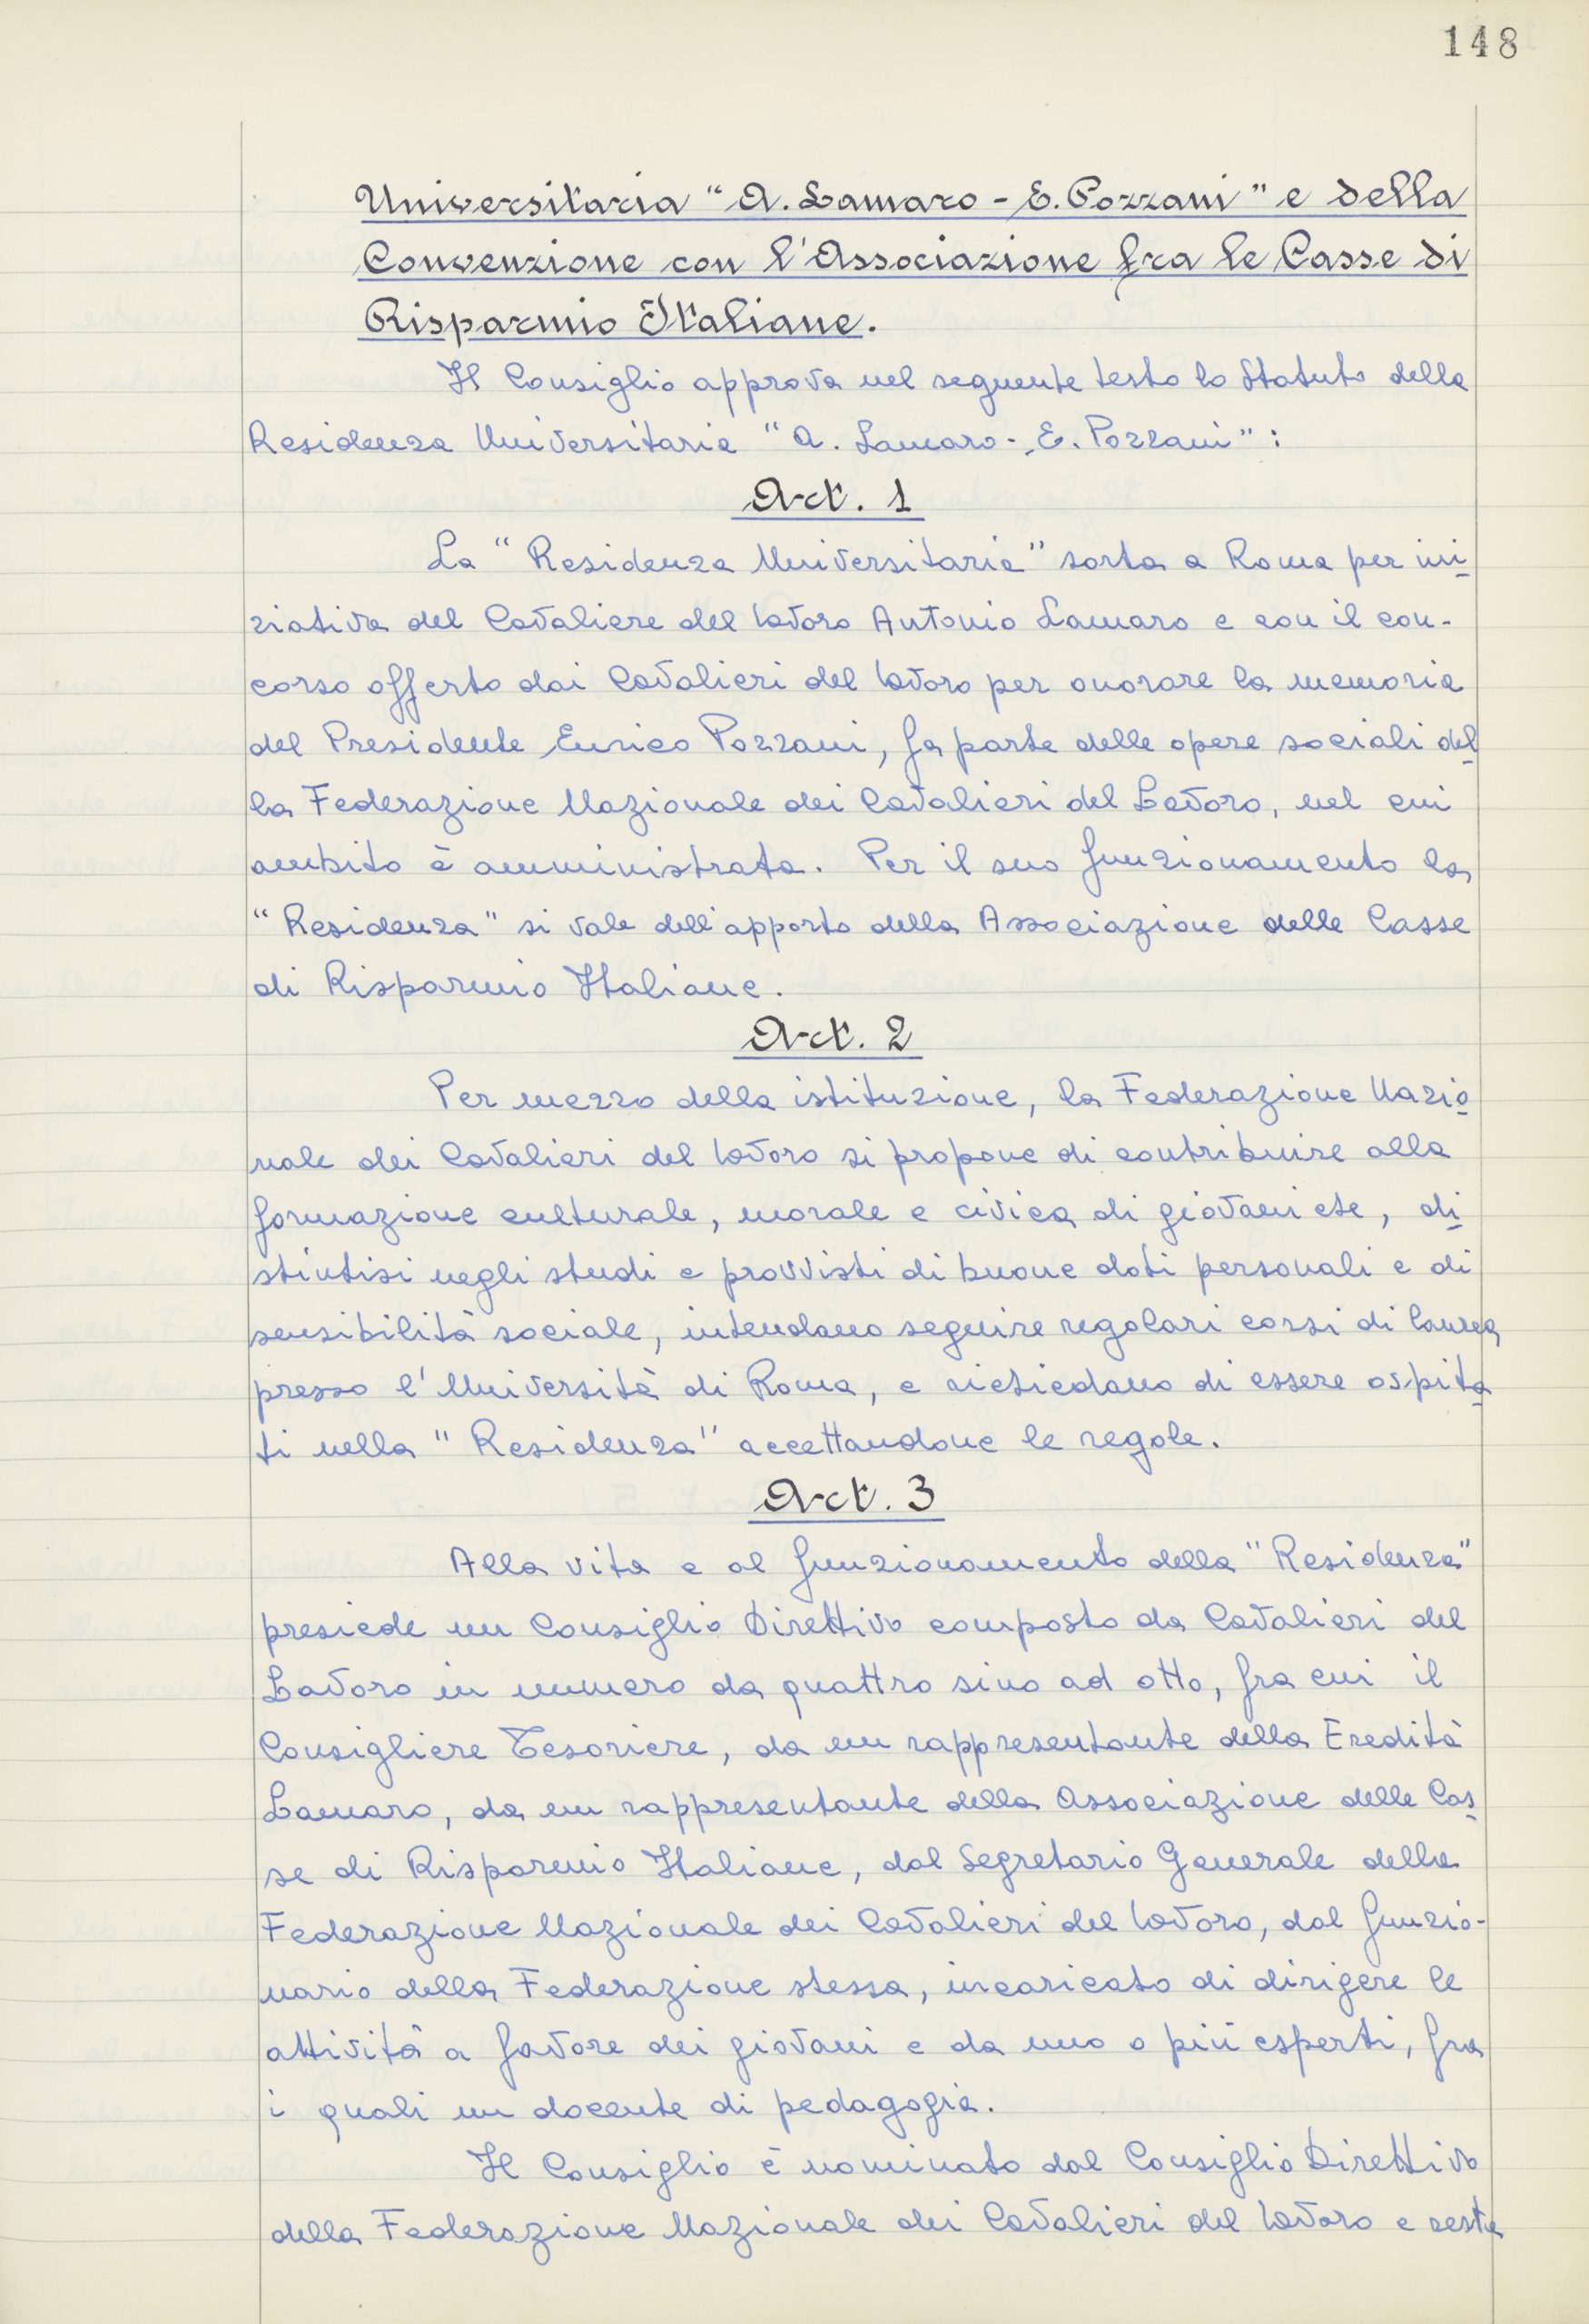 148
Universitaria "A. Lamaro - E. Pozzani" e della
Convenzione con l'Associazione fra le Casse di
Risparmio Italiane.
Il Consiglio approva nel seguente testo lo Statuto della
Residenza Universitaria "A. Lamaro - E. Pozzani":
Art. 1
La "Residenza Universitaria" sorta a Roma per ini
ziativa del Cavaliere del Lavoro Antonio Lamaro e con il con-
corso offerto dai Cavalieri del Lavoro per onorare la memoria
del Presidente Enrico Pozzani, fa parte delle opere sociali del
la Federazione Nazionale dei Cavalieri del Lavoro, nel cui
ambito è amministrata. Per il suo funzionamento la
"Residenza" si vale dell'apporto della Associazione delle Casse
di Risparmio Italiane.
Art. 2
Per mezzo della istituzione, la Federazione Nazio
nale dei Cavalieri del Lavoro si propone di contribuire alla
formazione culturale, morale e civica di giovani che, di
stintisi negli studi e provvisti di buone doti personali e di
sensibilità sociale, intendano seguire regolari corsi di laurea
presso l'Università di Roma, e richiedano di essere ospita
ti nella "Residenza" accettandone le regole.
Art. 3
Alla vita e al funzionamento della "Residenza"
presiede un Consiglio Direttivo composto da Cavalieri del
Lavoro in numero da quattro sino ad otto, fra cui il
Consigliere Tesoriere, da un rappresentante della Eredità
Lamaro, da un rappresentante della Associazione delle Cas
se di Risparmio Italiane, dal Segretario Generale della
Federazione Nazionale dei Cavalieri del Lavoro, dal funzio-
nario della Federazione stessa, incaricato di dirigere le
attività a favore dei giovani e da uno o più esperti, fra
i quali un docente di pedagogia.
Il Consiglio è nominato dal Consiglio Direttivo
della Federazione Nazionale dei Cavalieri del Lavoro e resta